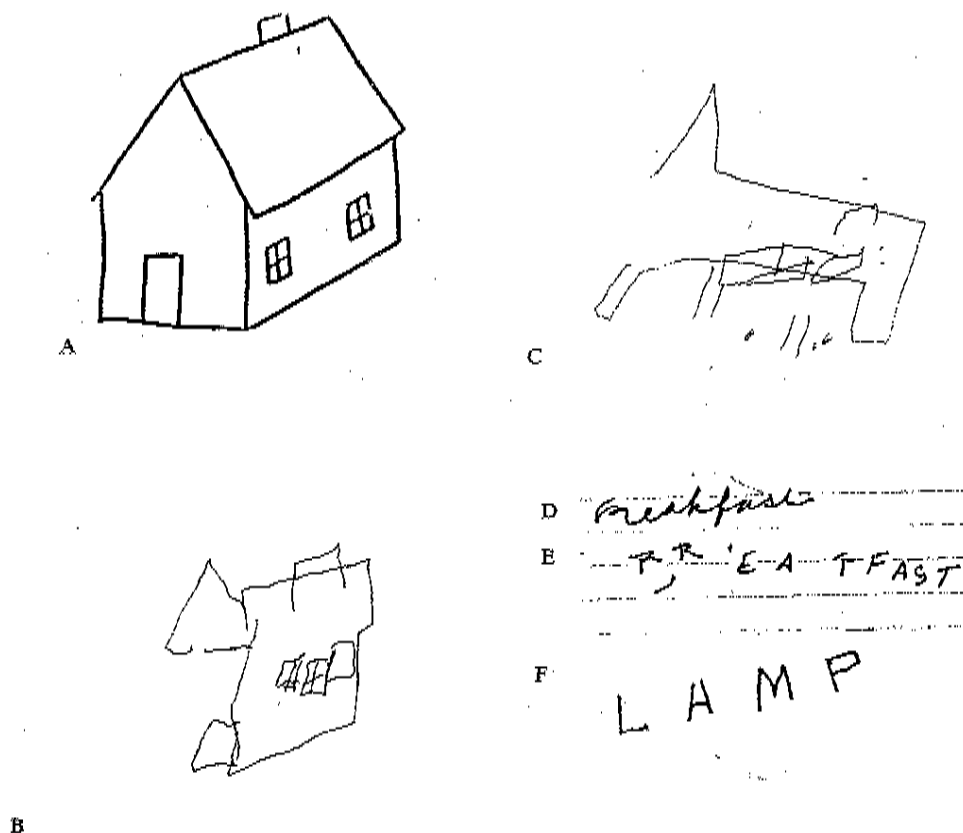 A
C
D Breakfast
E R, R 'E A TFAST
F L A M P
B